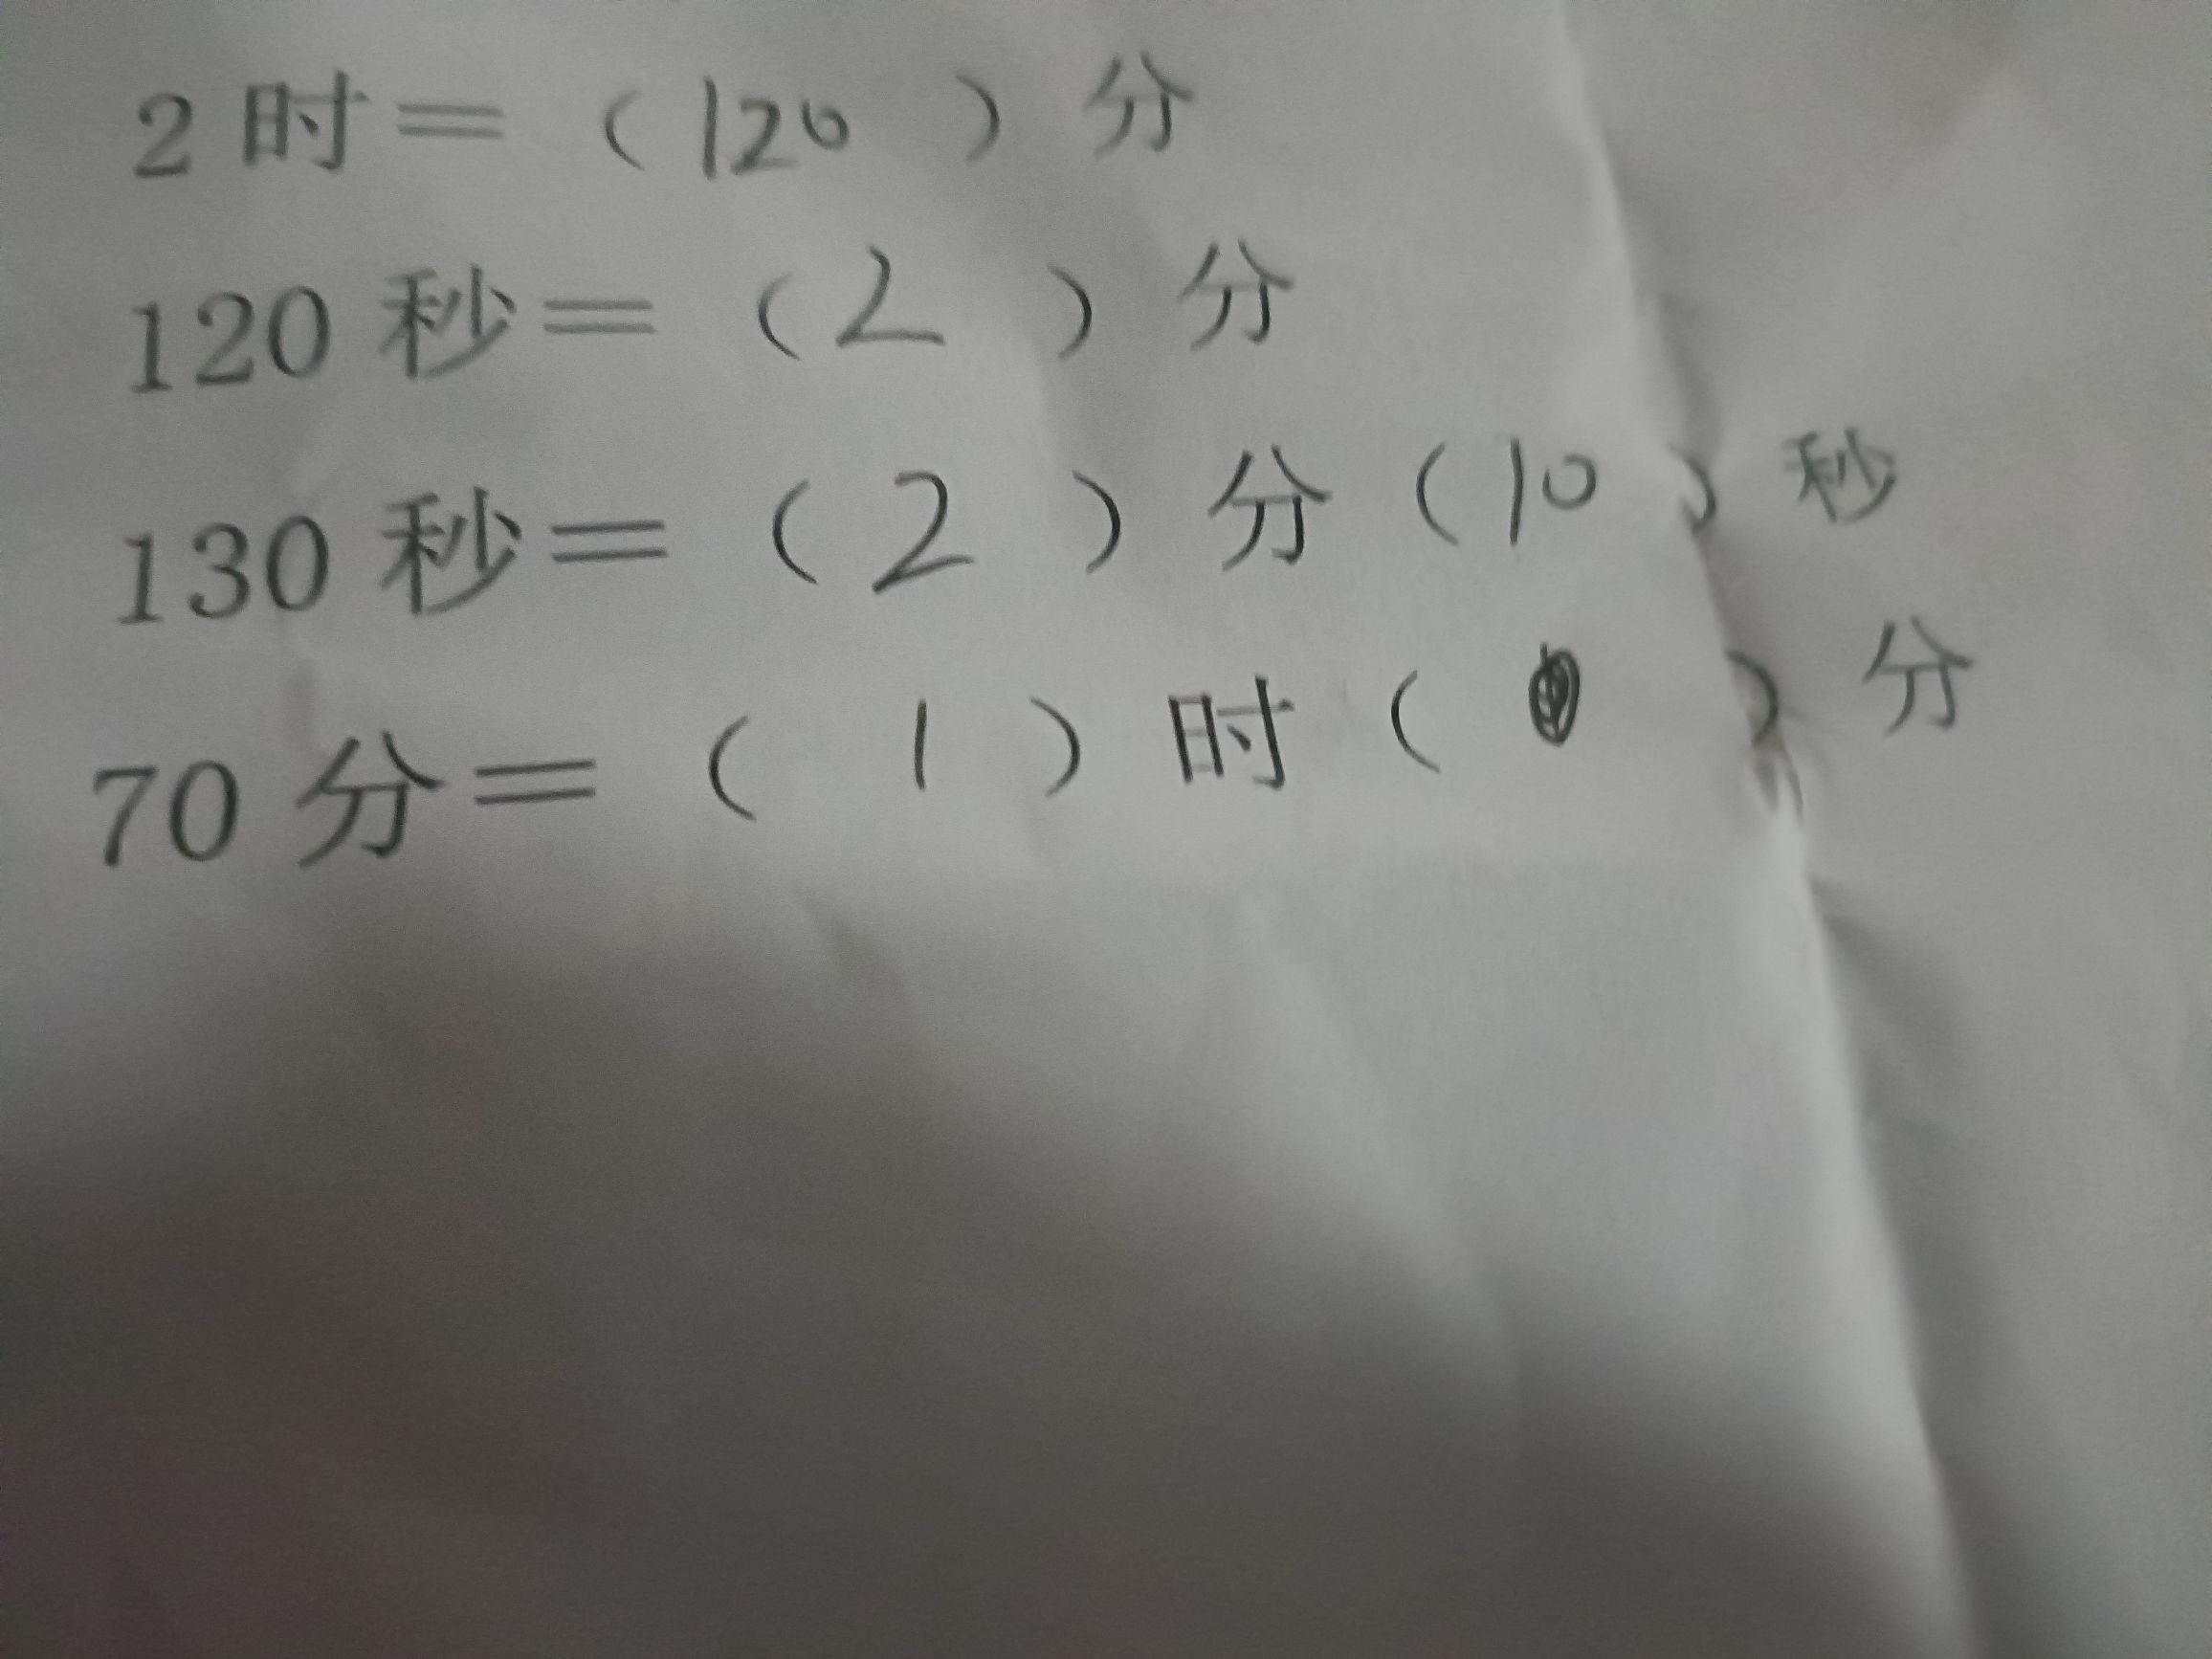 2时＝（120）分
120秒＝（2）分
130秒＝（2）分（10）秒
70分＝（1）时（）分